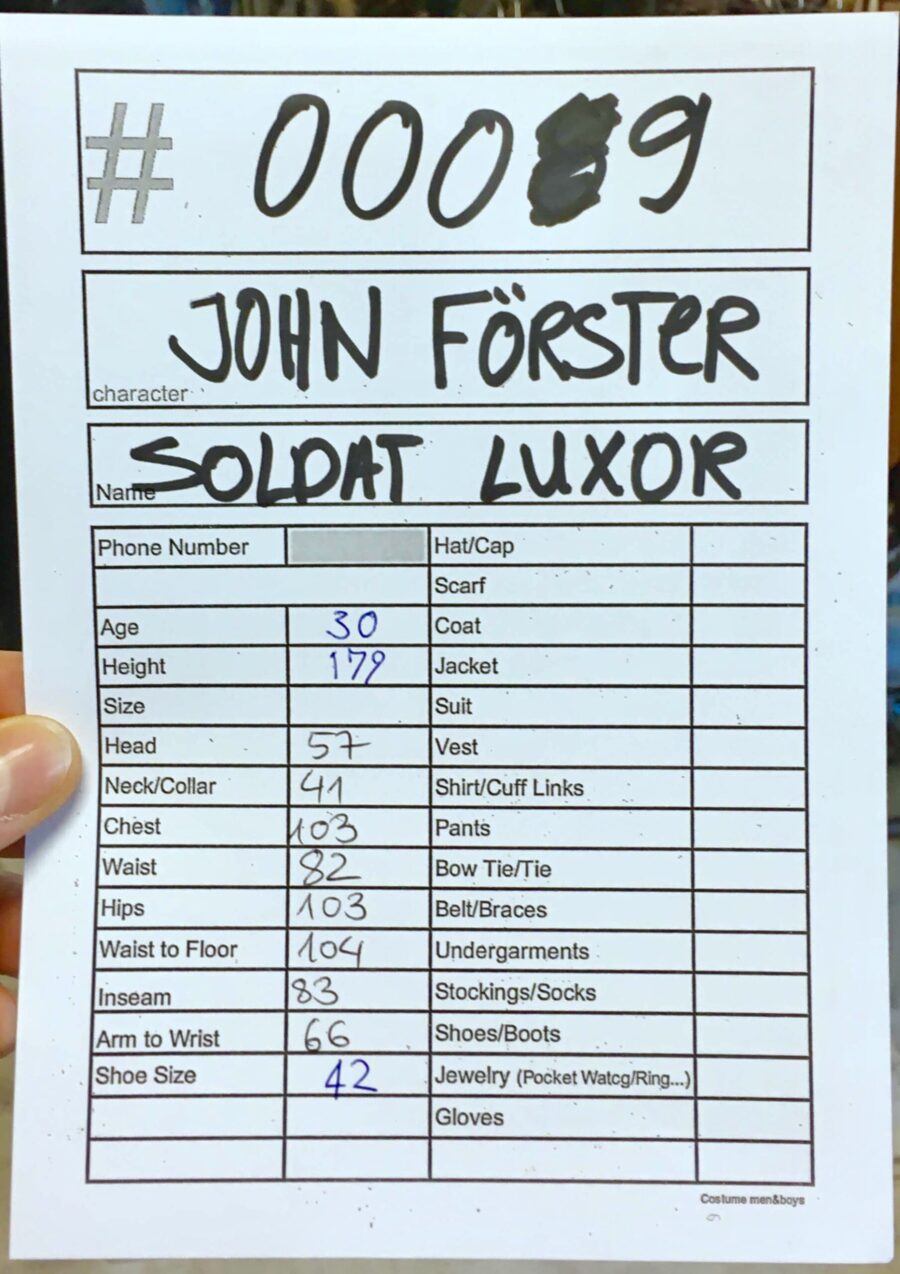 # 000 9
JOHN FÖRSTER
character
SOLDAT LUXOR
Name
Phone Number Hat/Cap
Scarf
Age 30 Coat
Height 179 Jacket
Size Suit
Head 57 Vest
Neck/Collar 41 Shirt/Cuff Links
Chest 103 Pants
Waist 82 Bow Tie/Tie
Hips 103 Belt/Braces
Waist to Floor 104 Undergarments
Inseam 83 Stockings/Socks
Arm to Wrist 66 Shoes/Boots
Shoe Size 42 Jewelry (Pocket Watcg/Ring...)
Gloves
Costume men&boys